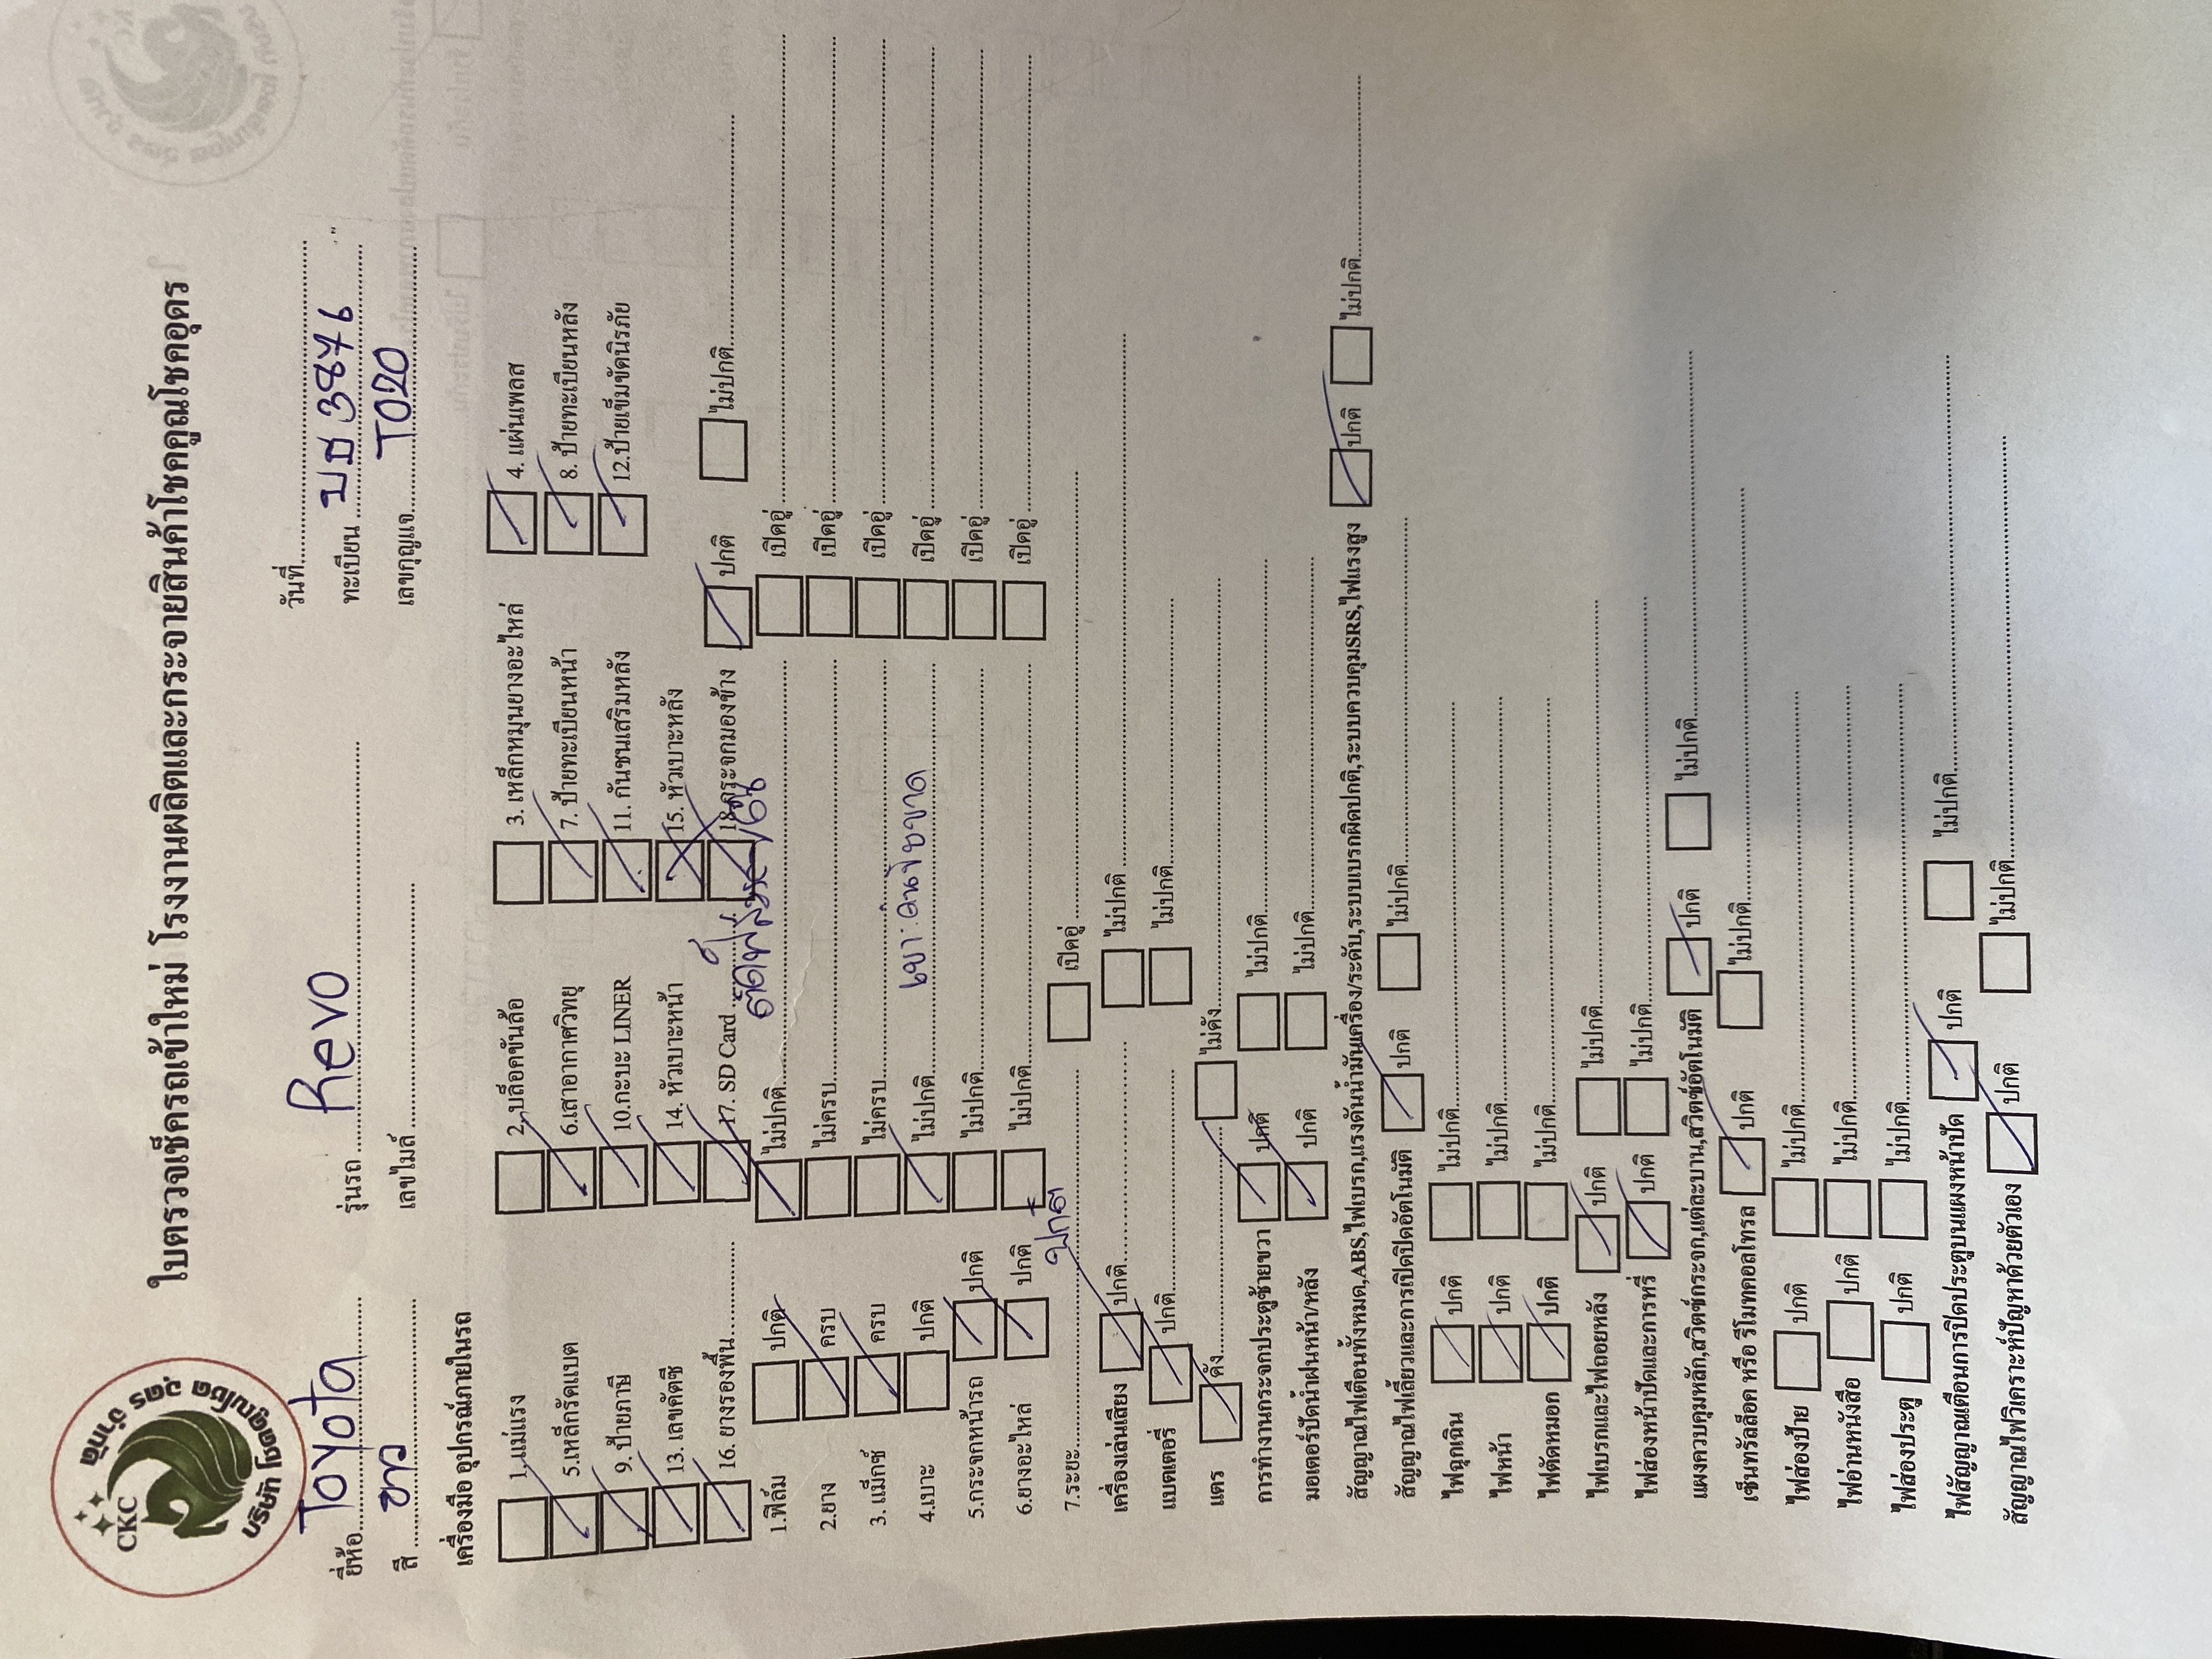 CKC
บริษัท โชคคูณโชค อุดร จำกัด
ใบตรวจเช็ครถเข้าใหม่ โรงงานผลิตและกระจายสินค้าโชคคูณโชคอุดร
วันที่
ยี่ห้อ Toyota รุ่นรถ Revo ทะเบียน บธ 3876
สี ขาว เลขไมล์ เลขกุญแจ T020
เครื่องมือ อุปกรณ์ภายในรถ
1.แม่แรง 2.บล็อคขันล้อ 3. เหล็กหมุนยางอะไหล่ 4. แผ่นเพลส
5.เหล็กรัดแบต 6.เสาอากาศวิทยุ 7. ป้ายทะเบียนหน้า 8. ป้ายทะเบียนหลัง
9. ป้ายภาษี 10.กะบะ LINER 11. กันชนเสริมหลัง 12.ป้ายเข็มขัดนิรภัย
13. เลขคัตซี 14. หัวเบาะหน้า 15. หัวเบาะหลัง
16. ยางรองพื้น 17. SD Card 18.กระจกมองข้าง ปกติ ไม่ปกติ
1.ฟิล์ม ปกติ ไม่ปกติ เปิดอู่
2.ยาง ครบ ไม่ครบ เปิดอู่
3. แม็กซ์ ครบ ไม่ครบ เปิดอู่
4.เบาะ ปกติ ไม่ปกติ เบาะคนขับขาด เปิดอู่
5.กระจกหน้ารถ ปกติ ไม่ปกติ เปิดอู่
6.ยางอะไหล่ ปกติ ไม่ปกติ เปิดอู่
7.ระยะ ปกติ เปิดอู่
เครื่องเล่นเสียง ปกติ ไม่ปกติ
แบตเตอรี่ ปกติ ไม่ปกติ
แตร ดัง ไม่ดัง
การทำงานกระจกประตูซ้ายขวา ปกติ ไม่ปกติ
มอเตอร์ปัดน้ำฝนหน้า/หลัง ปกติ ไม่ปกติ
สัญญาณไฟเตือนทั้งหมด,ABS,ไฟเบรก,แรงดันน้ำมันเครื่อง/ระดับ,ระบบเบรกผิดปกติ,ระบบควบคุมSRS,ไฟแรงสูง ปกติ ไม่ปกติ
สัญญาณไฟเลี้ยวและการเปิดปิดอัตโนมัติ ปกติ ไม่ปกติ
ไฟฉุกเฉิน ปกติ ไม่ปกติ
ไฟหน้า ปกติ ไม่ปกติ
ไฟตัดหมอก ปกติ ไม่ปกติ
ไฟเบรกและไฟถอยหลัง ปกติ ไม่ปกติ
ไฟส่องหน้าปัดและการหรี่ ปกติ ไม่ปกติ
แผงควบคุมหลัก,สวิตช์กระจก,แต่ละบาน,สวิตช์อัตโนมัติ ปกติ ไม่ปกติ
เซ็นทรัลล็อค หรือ รีโมทคอลโทรล ปกติ ไม่ปกติ
ไฟส่องป้าย ปกติ ไม่ปกติ
ไฟอ่านหนังสือ ปกติ ไม่ปกติ
ไฟส่องประตู ปกติ ไม่ปกติ
ไฟสัญญาณเตือนการปิดประตูบนแผงหน้าปัด ปกติ ไม่ปกติ
สัญญาณไฟวิเคราะห์ปัญหาด้วยตัวเอง ปกติ ไม่ปกติ